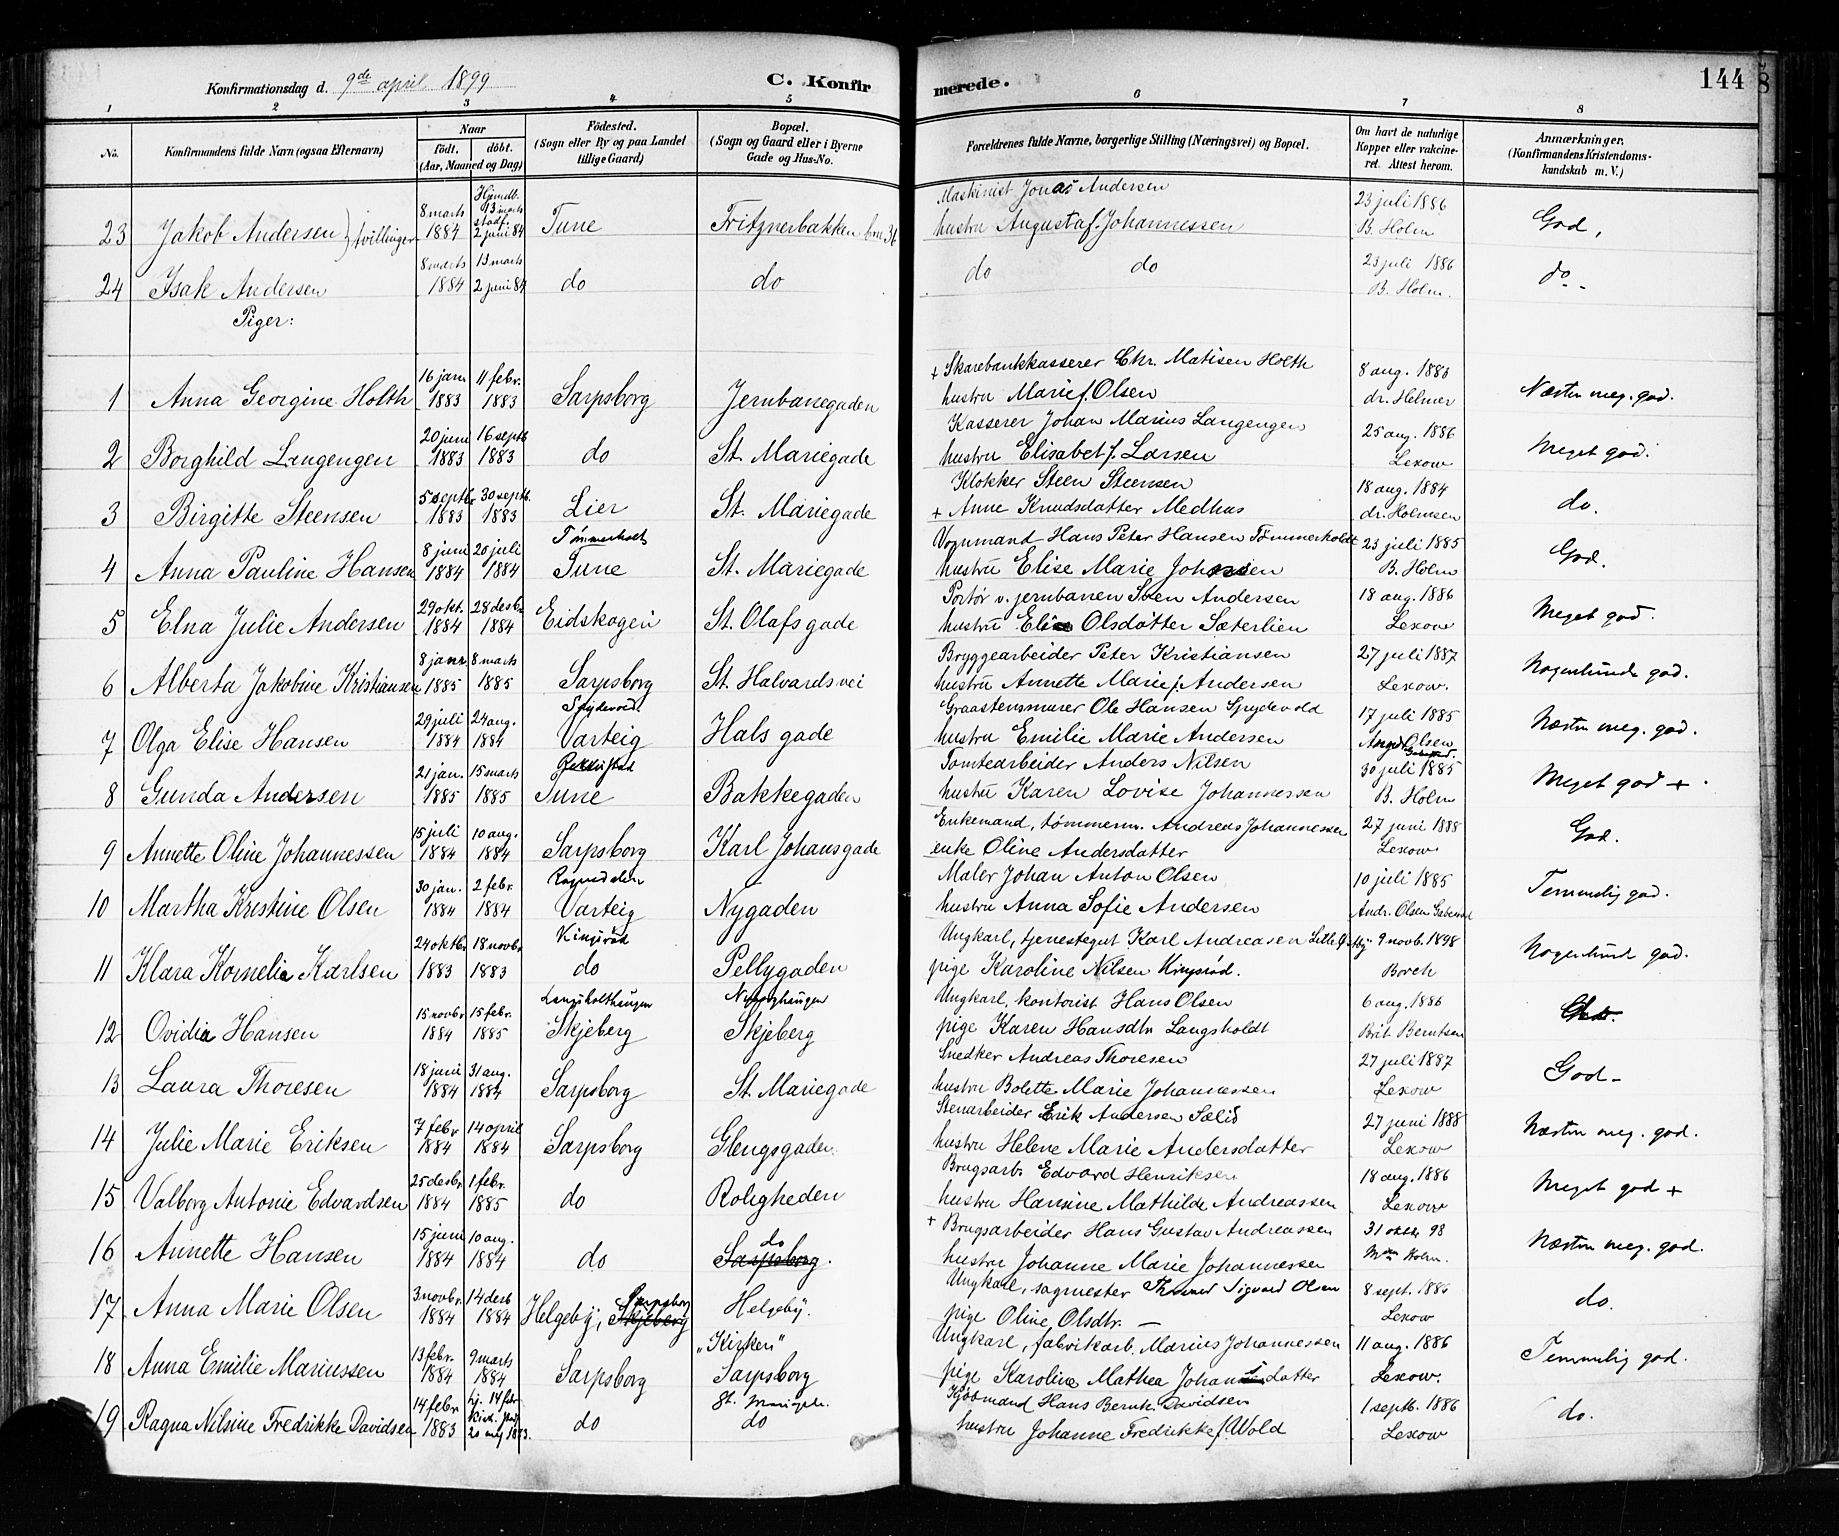 Konfirmationsdag d. 9de april 1899 C. Konfirmerede. 144
1 2 3 4 5 6 7 8
No. Konfirmandens fulde Navn (ogsaa Efternavn) Naar født. døbt. (Aar, Maaned og Dag) Fødested. (Sogn eller By og paa Landet tillige Gaard) Bopæl. (Sogn og Gaard eller i Byerne Gade og Hus-No. Forældrenes fulde Navne, borgerlige Stilling (Næringsvei) og Bopæl. Om havt de naturlige Kopper eller vakcineret. Attest herom. Anmærkninger. (Konfirmandens Kristendomskundskab m. V.)
8 marts Hjemdb. 13 marts stadf. Maskinist Jonas Andersen 23 juli 1886
23 Jakob Andersen } tvillinger 1884 2 juni 84 Tune Fritznerbakken hustru Augusta f. Johannessen B. Holm God,
8 marts 13 marts do do 23 juli 1886
24 Isak Andersen 1884 2 juni 84 do do B. Holm. do.
Piger:
16 jan 11 febr. + Skarebankkasserer Chr. Matisen Holth 8 aug. 1883
1 Anna Georgine Holth 1883 1883 Sarpsborg Jernbanegaden hustru Marie f. Olsen dr. Helmer Næsten meg. god.
20 juni 16 septb Kasserer Johan Marius Langengen 25 aug. 1886
2 Borghild Langengen 1883 1883 do St. Mariegade hustru Elisabet f. Larsen Lexow Meget god.
5 septbr 30 septb. Klokker Steen Steensen 18 aug. 1884
3 Birgitte Steensen 1883 1883 Lier St. Mariegade + Anne Knudsdatter Medhus dr. Holmsen do.
8 juni 20 juli Tömmerholt Vognmand Hans Peter Hansen Tömmerholdt 23 juli 1885
4 Anna Pauline Hansen 1884 1884 Tune St. Mariegade hustru Elise Marie Johansen B. Holm God.
29 okt. 28 desbr Portör v. jernbanen Sven Andersen 18 aug. 1886
5 Elna Julie Andersen 1884 1884 Eidskogen St. Olafs gade hustru Elise Olsdatter Sæterlien Lexow Meget god.
8 janr 8 marts Bryggearbeider Peter Kristiansen 27 juli 1887
6 Alberta Jakobine Kristiansen 1885 1885 Sarpsborg St. Halvards vei hustru Annette Marie f. Andersen Lexow. Nogenlunde god.
29 juli 24 aug. Spydevold Graastensmurer Ole Hansen Spydevold 17 juli 1885
7 Olga Elise Hansen 1884 1884 Varteig Hals gade hustru Emilie Marie Andersen Olsen Næsten meg. god.
21 jan. 15 marts Tomtearbeider Anders Nilsen 30 juli 1885
8 Gunda Andersen 1885 1885 Tune Bakkegaden hustru Karen Lovise Johannessen B. Holm Meget god +
15 juli 10 aug. Enkemand, tömmerm. Andreas Johannessen 27 juni 1888
9 Annette Oline Johannessen 1884 1884 Sarpsborg Karl Johansgade enke Oline Andersdatter Lexow God.
30 jan. 2 febr. Maler Johan Anton Olsen 10 juli 1885
10 Martha Kristine Olsen 1884 1884 Varteig Nygaden hustru Anna Sofie Andersen Andr. Olsen Temmelig god.
24 oktbr 18 novbr Kingsröd Ungkarl, tjenestegut Karl Andreasen 9 novb. 1898
11 Klara Kornelia Karlsen 1883 1883 do Pellygaden pige Karoline Nilsen Kingsröd. Borch Nogenlund god.
15 novbr 15 febr. Langsholthaugen Ungkarl, kontorist Hans Olsen 6 aug. 1886
12 Ovidia Hansen 1884 1885 Skjeberg Skjeberg pige Karen Hansdtr Langsholdt Brit. Berntsen God.
18 juni 31 aug. Snedker Andreas Thoresen 27 juli 1887
13 Laura Thoresen 1884 1884 Sarpsborg St. Mariegade hustru Bolette Marie Johannessen Lexow God
7 febr 14 april Stenarbeider Erik Andersen Sælid 27 juni 1888
14 Julie Marie Eriksen 1884 1884 Sarpsborg Glengsgaden hustru Helene Marie Andersdatter Lexow Næsten meg. god.
25 desbr. 1 febr. Brugsarb. Edvard Henriksen 18 aug. 1886
15 Valborg Antonie Edvardsen 1884 1885 do Roligheden hustru Hansine Mathilde Andreassen Lexow Meget god +
15 juni 10 aug. do + Brugsarbeider Hans Gustav Andreassen 31 oktbr 98
16 Annette Hansen 1884 1884 do Sarpsborg. hustru Johanne Marie Johannessen Holm. Næsten meg. god.
3 novbr. 14 desb Sarpsborg Ungkarl, sagmester Sigvard Olsen 8 sept. 1885
17 Anna Marie Olsen 1884 1884 Helgeby, Skjeberg Helgeby. pige Oline Olsdtr. — Lexow do.
13 febr. 9 marts „Kirken" Ungkarl, fabrikarb. Marius Johannessen 11 aug. 1886
18 Anna Emilie Mariussen 1884 1884 Sarpsborg Sarpsborg pige Karoline Mathea Johansdatter Lexow. Temmelig god.
14 febr. hj. 14 febr St. Mariegade. Kjöbmand Hans Bernh. Davidsen 1 septb. 1886
19 Ragna Nilsine Fredrikke Davidsen 1883 20 maj 1883. do do hustru Johanne Fredrikke f. Wold Lexow do.